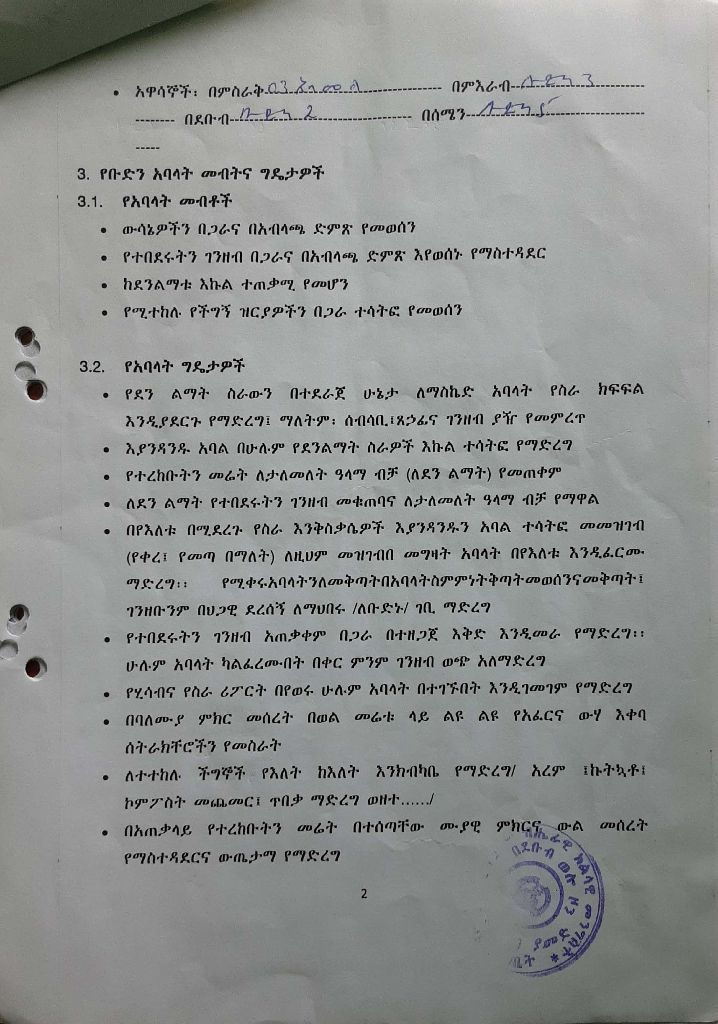 • አዋሳኞች፡ በምስራቅ ---------------- በምእራብ-----------------
-------- በደቡብ----------------- 2 ---------------- በሰሜን-----------------
-----
3. የቡድን አባላት መብትና ግዴታዎች
3.1. የአባላት መብቶች
• ውሳኔዎችን በጋራና በአብላጫ ድምጽ የመወሰን
• የተበደሩትን ገንዘብ በጋራና በአብላጫ ድምጽ እየወሰኑ የማስተዳደር
• ከደንልማቱ እኩል ተጠቃሚ የመሆን
• የሚተከሉ የችግኝ ዝርያዎችን በጋራ ተሳትፎ የመወሰን
3.2. የአባላት ግዴታዎች
• የደን ልማት ስራውን በተደራጀ ሁኔታ ለማስኬድ አባላት የስራ ክፍፍል
እንዲያደርጉ የማድረግ፤ ማለትም፡ ሰብሳቢ፤ጸኃፊና ገንዘብ ያዥ የመምረጥ
• እያንዳንዱ አባል በሁሉም የደንልማት ስራዎች እኩል ተሳትፎ የማድረግ
• የተረከቡትን መሬት ለታለመለት ዓላማ ብቻ (ለደን ልማት) የመጠቀም
• ለደን ልማት የተበደሩትን ገንዘብ መቁጠባና ለታለመለት ዓላማ ብቻ የማዋል
• በየእለቱ በሚደረጉ የስራ እንቅስቃሴዎች እያንዳንዱን አባል ተሳትፎ መመዝገብ
(የቀረ፤ የመጣ በማለት) ለዚህም መዝገብበ መግዛት አባላት በየእለቱ እንዲፈርሙ
ማድረግ፡፡ የሚቀሩአባላትንለመቅጣትበአባላትስምምነትቅጣትመወሰንናመቅጣት፤
ገንዘቡንም በህጋዊ ደረሰኝ ለማህበሩ /ለቡድኑ/ ገቢ ማድረግ
• የተበደሩትን ገንዘብ አጠቃቀም በጋራ በተዘጋጀ እቅድ እንዲመራ የማድረግ፡፡
ሁሉም አባላት ካልፈረሙበት በቀር ምንም ገንዘብ ወጭ አለማድረግ
• የሂሳብና የስራ ሪፖርት በየወሩ ሁሉም አባላት በተገኙበት እንዲገመገም የማድረግ
• በባለሙያ ምክር መሰረት በወል መሬቱ ላይ ልዩ ልዩ የአፈርና ውሃ እቀባ
ሰትራክቸሮችን የመስራት
• ለተተከሉ ችግኞች የእለት ከእለት እንክብካቤ የማድረግ/ አረም ፤ኩትኳቶ፤
ኮምፖስት መጨመር፤ ጥበቃ ማድረግ ወዘተ....../
• በአጠቃላይ የተረከቡትን መሬት በተሰጣቸው ሙያዊ ምክርና ውል መሰረት
የማስተዳደርና ውጤታማ የማድረግ
2
ክልላዊ መንግስት *
በደቡብ ወሎ ዞን